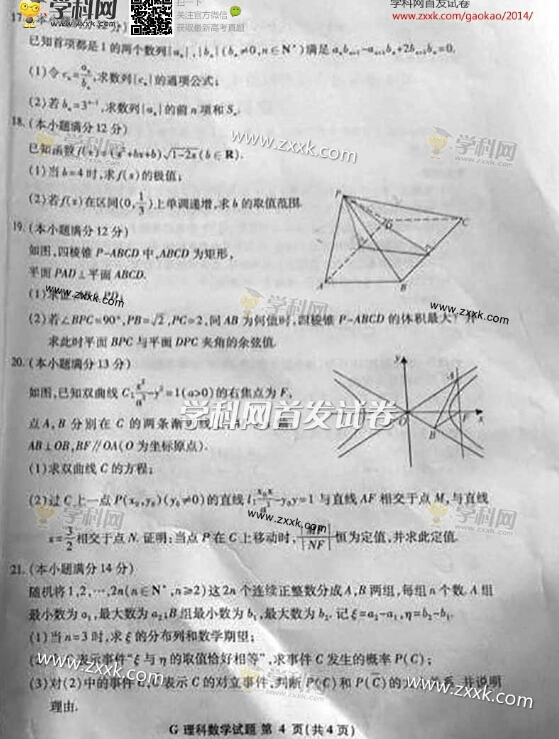 扫一扫
获取最新高考真题
首发试卷
www.zxxk.com/gaokao/2014/
17. 本 分)
已知首项都是1的两个数列{aₙ},{bₙ}(bₙ≠0,n∈N*)满足aₙbₙ₊₁-aₙ₊₁bₙ+2bₙ₊₁bₙ=0.
(1)令cₙ=aₙ/bₙ,求数列{cₙ}的通项公式;
(2)若bₙ=3ⁿ⁻¹,求数列{aₙ}的前n项和Sₙ.
18. (本小题满分12分)
学科网
www.zxxk.com
学科网
已知函数f(x)=(x²+bx+b)√1-2x(b∈R).
(1)当b=4时,求f(x)的极值;
(2)若f(x)在区间(0,1/3)上单调递增,求b的取值范围.
19. (本小题满分12分)
如图,四棱锥P-ABCD中,ABCD为矩形,
平面PAD⊥平面ABCD.
(1)求证 PD;
www.zxxk.com
学科网
www.zxxk.com
P
D
C
A
B
(2)若∠BPC=90°,PB=√2,PC=2,问AB为何值时,四棱锥P-ABCD的体积最大?并
求此时平面BPC与平面DPC夹角的余弦值.
20. (本小题满分13分)
如图,已知双曲线C: -y²=1(a>0)的右焦点为F,
学科网首发试卷
点A,B分别在C的两条渐 线
AB⊥OB,BF∥OA(O为坐标原点).
y
A
O
B
F
x
(1)求双曲线C的方程;
(2)过C上一点P(x₀,y₀)(y₀≠0)的直线l: -y₀y=1与直线AF相交于点M,与直线
学科网
www.zxxk.com
学科网
x=3/2相交于点N.证明:当点P在C上移动时,|MF|/|NF|恒为定值,并求此定值.
21. (本小题满分14分)
随机将1,2,⋯,2n(n∈N*,n≥2)这2n个连续正整数分成A,B两组,每组n个数.A组
最小数为a₁,最大数为a₂;B组最小数为b₁,最大数为b₂.记ξ=a₂-a₁,η=b₂-b₁.
(1)当n=3时,求ξ的分布列和数学期望;
(2) 表示事件“ξ与η的取值恰好相等”,求事件C发生的概率P(C);
www.zxxk.com
学科网
www.zxxk.com
(3)对(2)中的事件C,C̄表示C的对立事件,判断P(C)和P(C̄)的大小关系,并说明
理由.
G 理科数学试题 第4页(共4页)